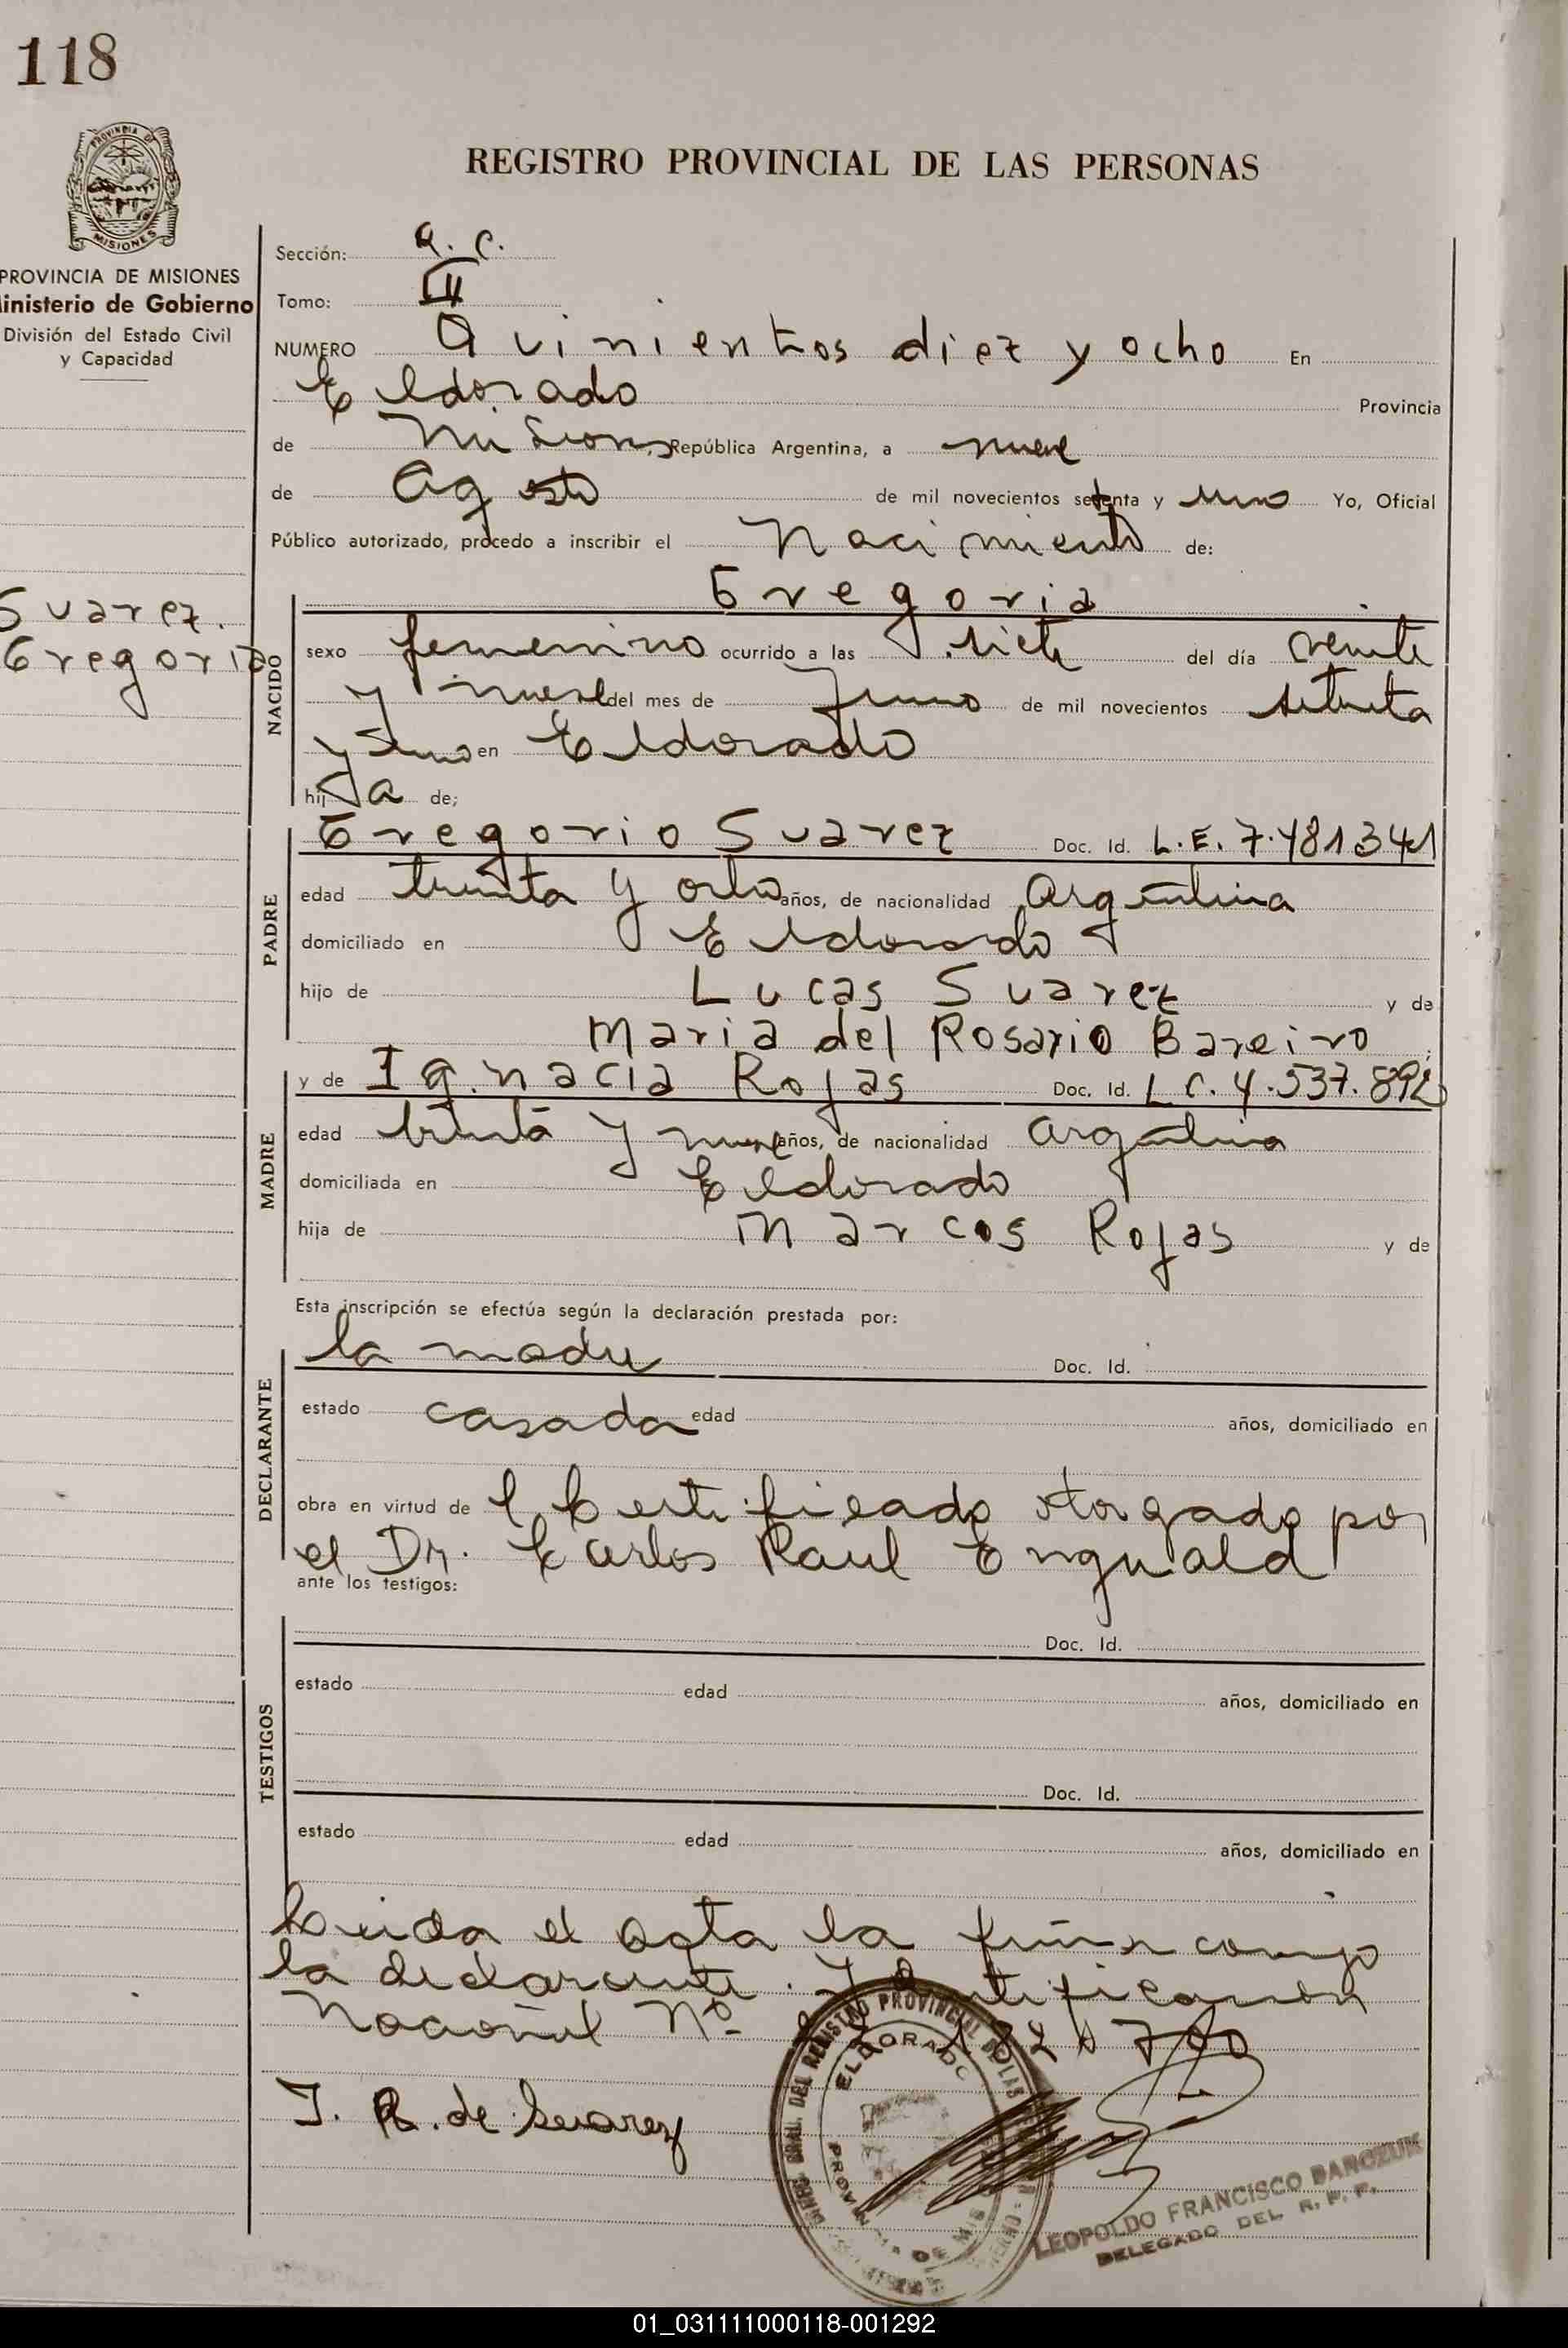 118
REGISTRO PROVINCIAL DE LAS PERSONAS
PROVINCIA DE MISIONES
PROVINCIA DE MISIONES
Ministerio de Gobierno
División del Estado Civil
y Capacidad
Suarez.
Gregoria
Sección: a. c.
Tomo: III
NUMERO Quinientos diez y ocho En
Eldorado Provincia
de Misiones, República Argentina, a nueve
de Agosto de mil novecientos setenta y uno Yo, Oficial
Público autorizado, procedo a inscribir el Nacimiento de:
NACIDO
Gregoria
sexo femenino ocurrido a las siete del día veinte
y nueve del mes de Junio de mil novecientos setenta
y uno en Eldorado
hija de;
PADRE
Gregorio Suarez Doc. Id. L.E. 7.481341
edad treinta y ocho años, de nacionalidad Argentina
domiciliado en Eldorado
hijo de Lucas Suarez y de
Maria del Rosario Bareiro
MADRE
y de Ignacia Rojas Doc. Id. L C. 4.537.892
edad treinta y nueve años, de nacionalidad argentina
domiciliada en Eldorado
hija de Marcos Rojas y de
Esta inscripción se efectúa según la declaración prestada por:
DECLARANTE
la madre Doc. Id.
estado casada edad años, domiciliado en
obra en virtud de l Certificado otorgado por
el Dr. Carlos Raul
ante los testigos:
TESTIGOS
Doc. Id.
estado edad años, domiciliado en
Doc. Id.
estado edad años, domiciliado en
Leida el acta la firma conmigo
la declarante. Identificación
Nacional Nº
I. R. de Suarez
DEL REGISTRO PROVINCIAL DE LAS
ELDORADO
LEOPOLDO FRANCISCO BAROZUK
DELEGADO DEL R. P. P.
01_031111000118-001292